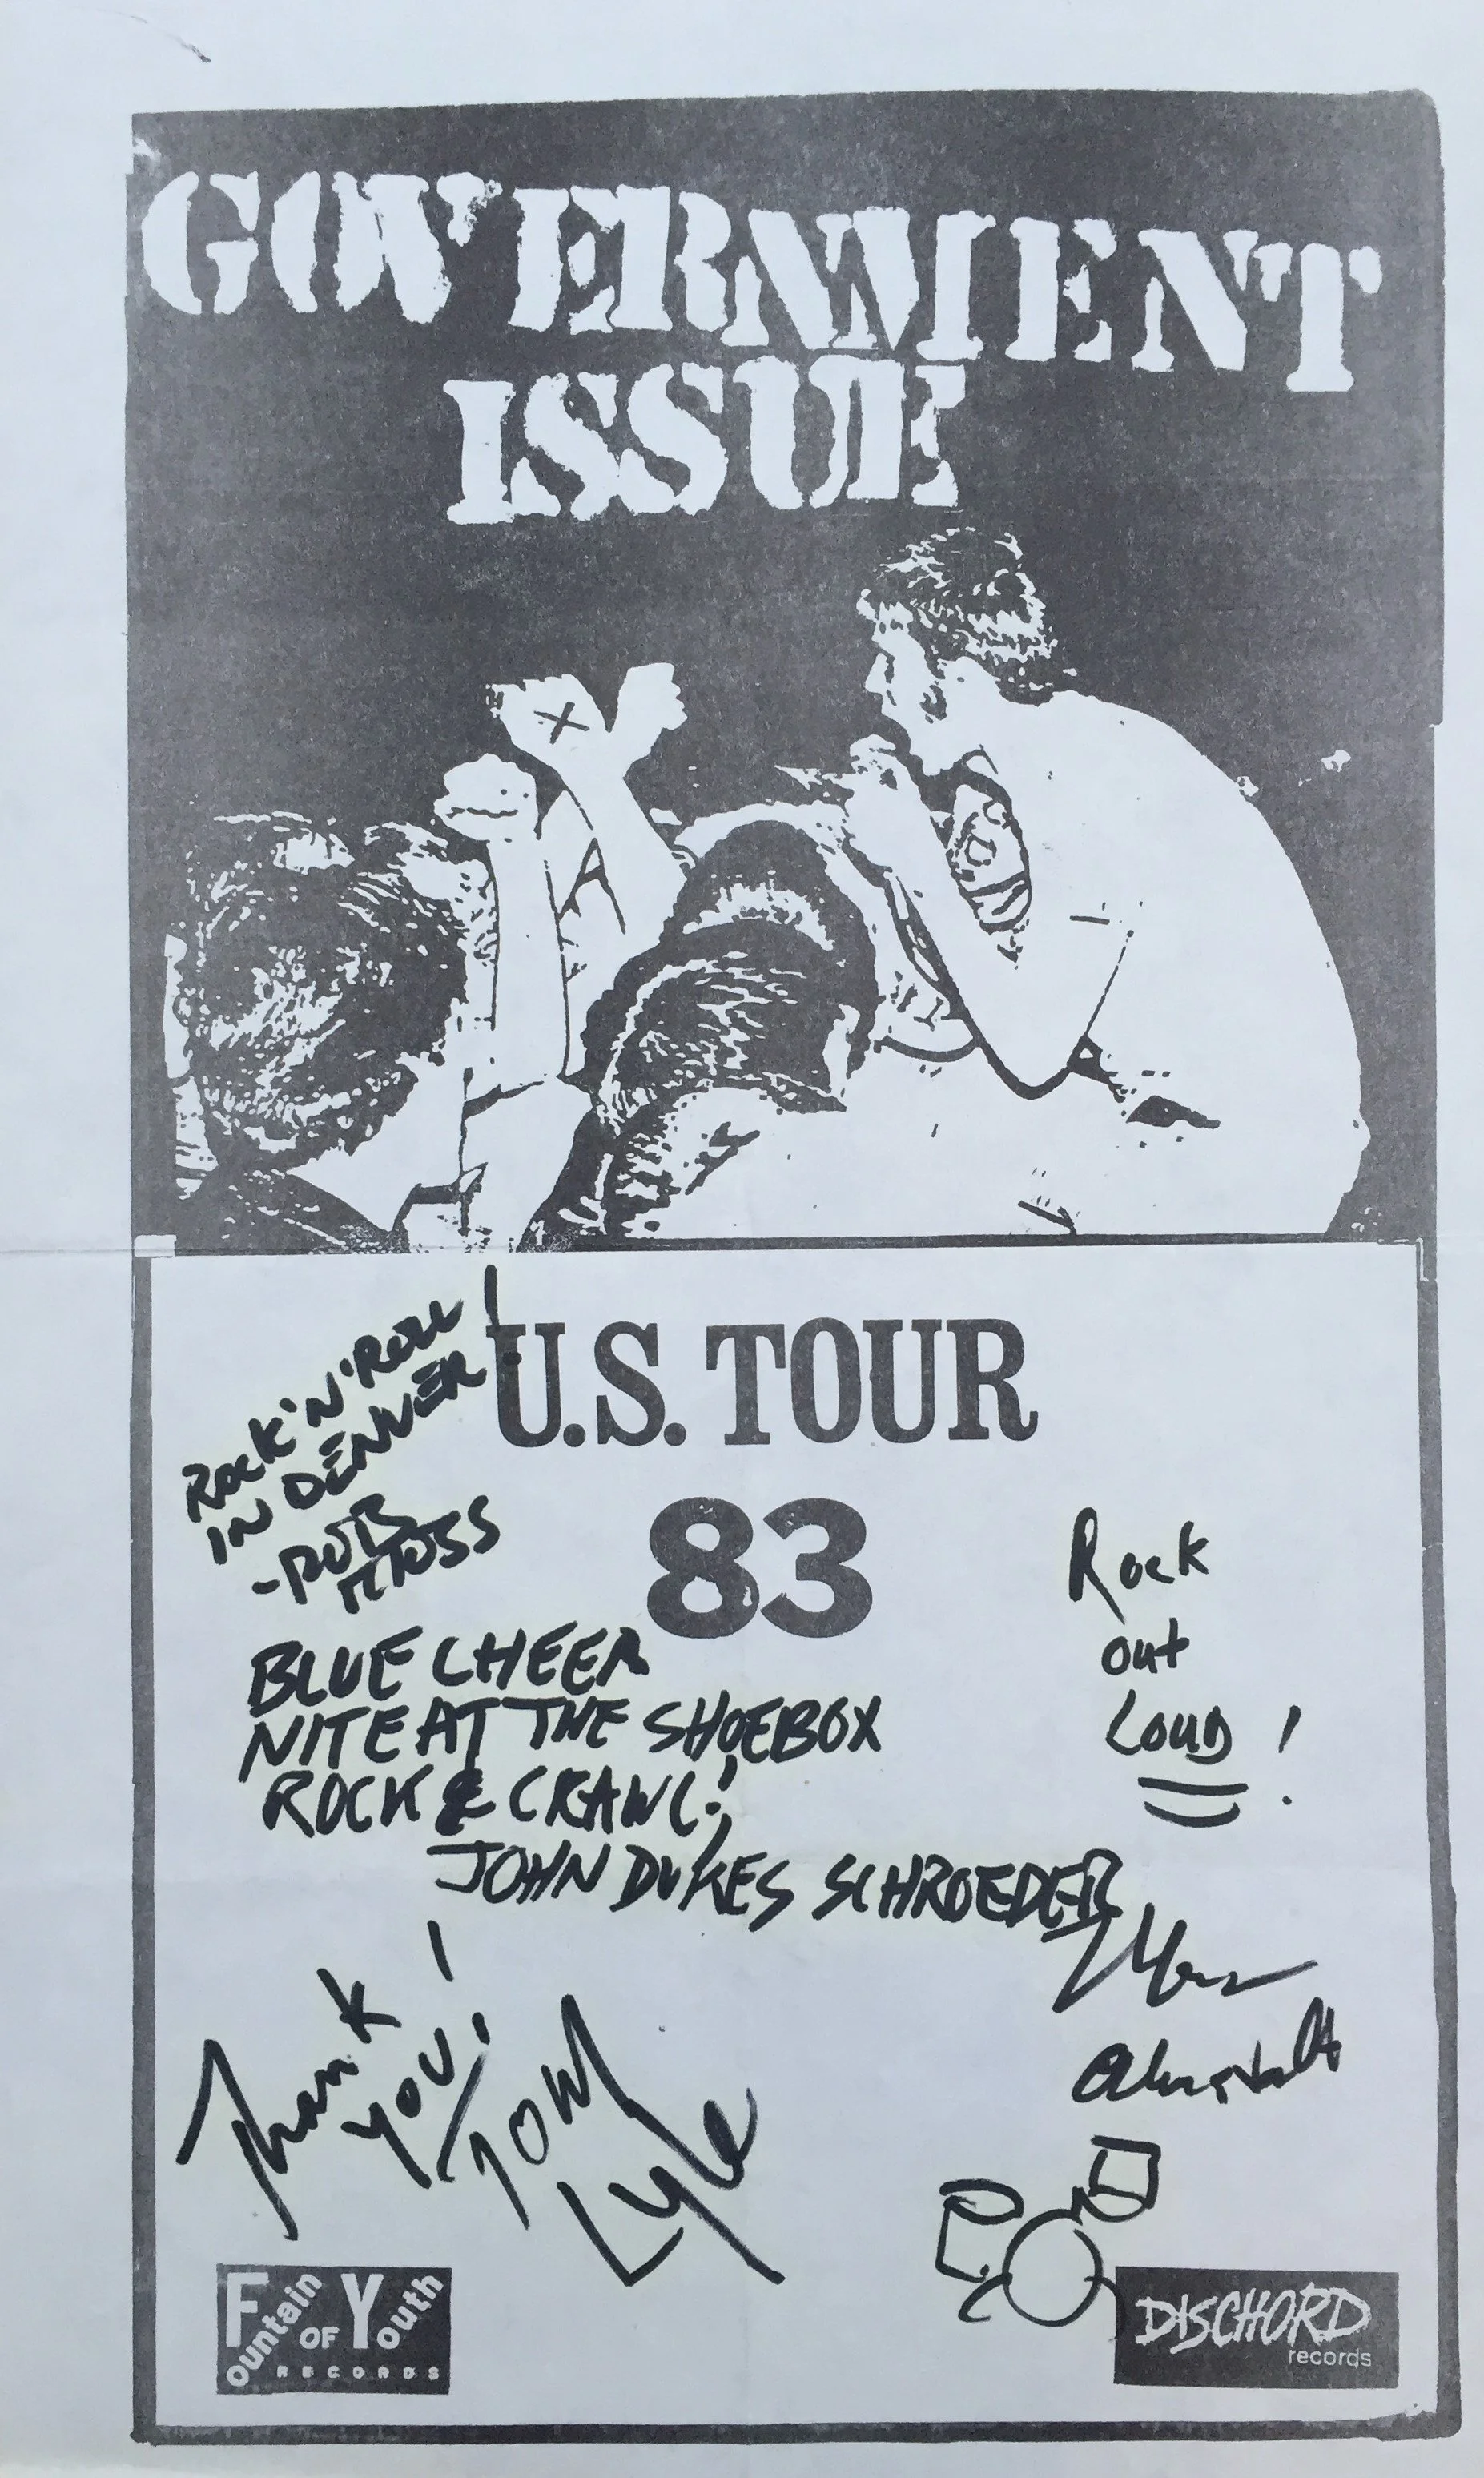 GOVERNMENT
ISSUE
X
U.S. TOUR
83
ROCK 'N' ROLL
IN DENVER!
-ROB
MOSS
BLUE CHEER
NITE AT THE SHOEBOX
ROCK & CRAWL!
JOHN DUKES SCHROEDER
Rock
out
LOUD!
Thank
YOU!
TOM
Lyle
Fountain OF Youth
RECORDS
DISCHORD
records